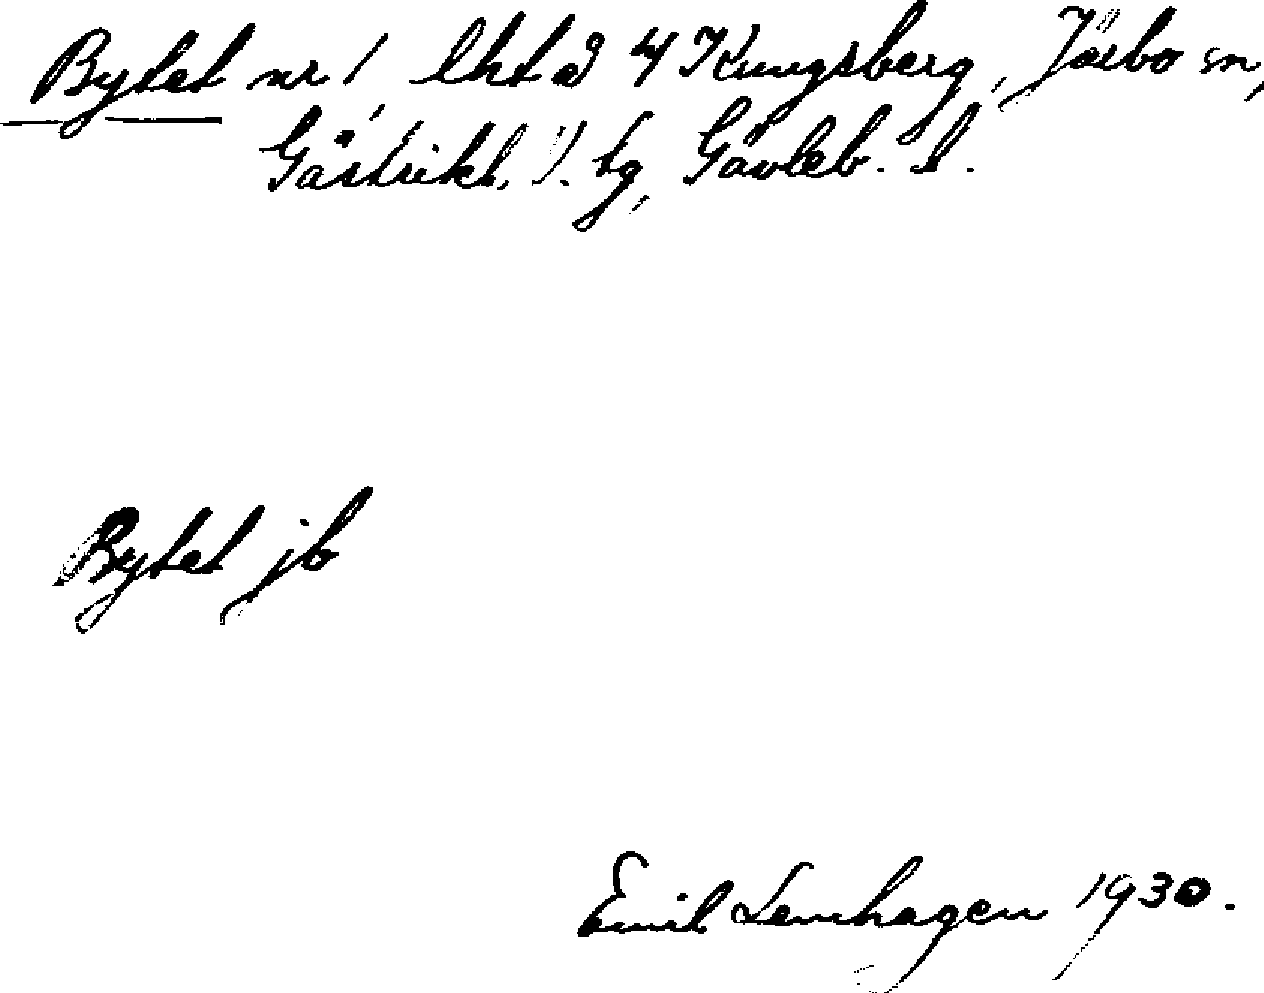 Bytet nr 1 lht å 4 Kungsberg, Järbo sn,
Gästrikl. V. tg, Gävleb. l.
Bytet jb
Emil Lenhagen 1930.